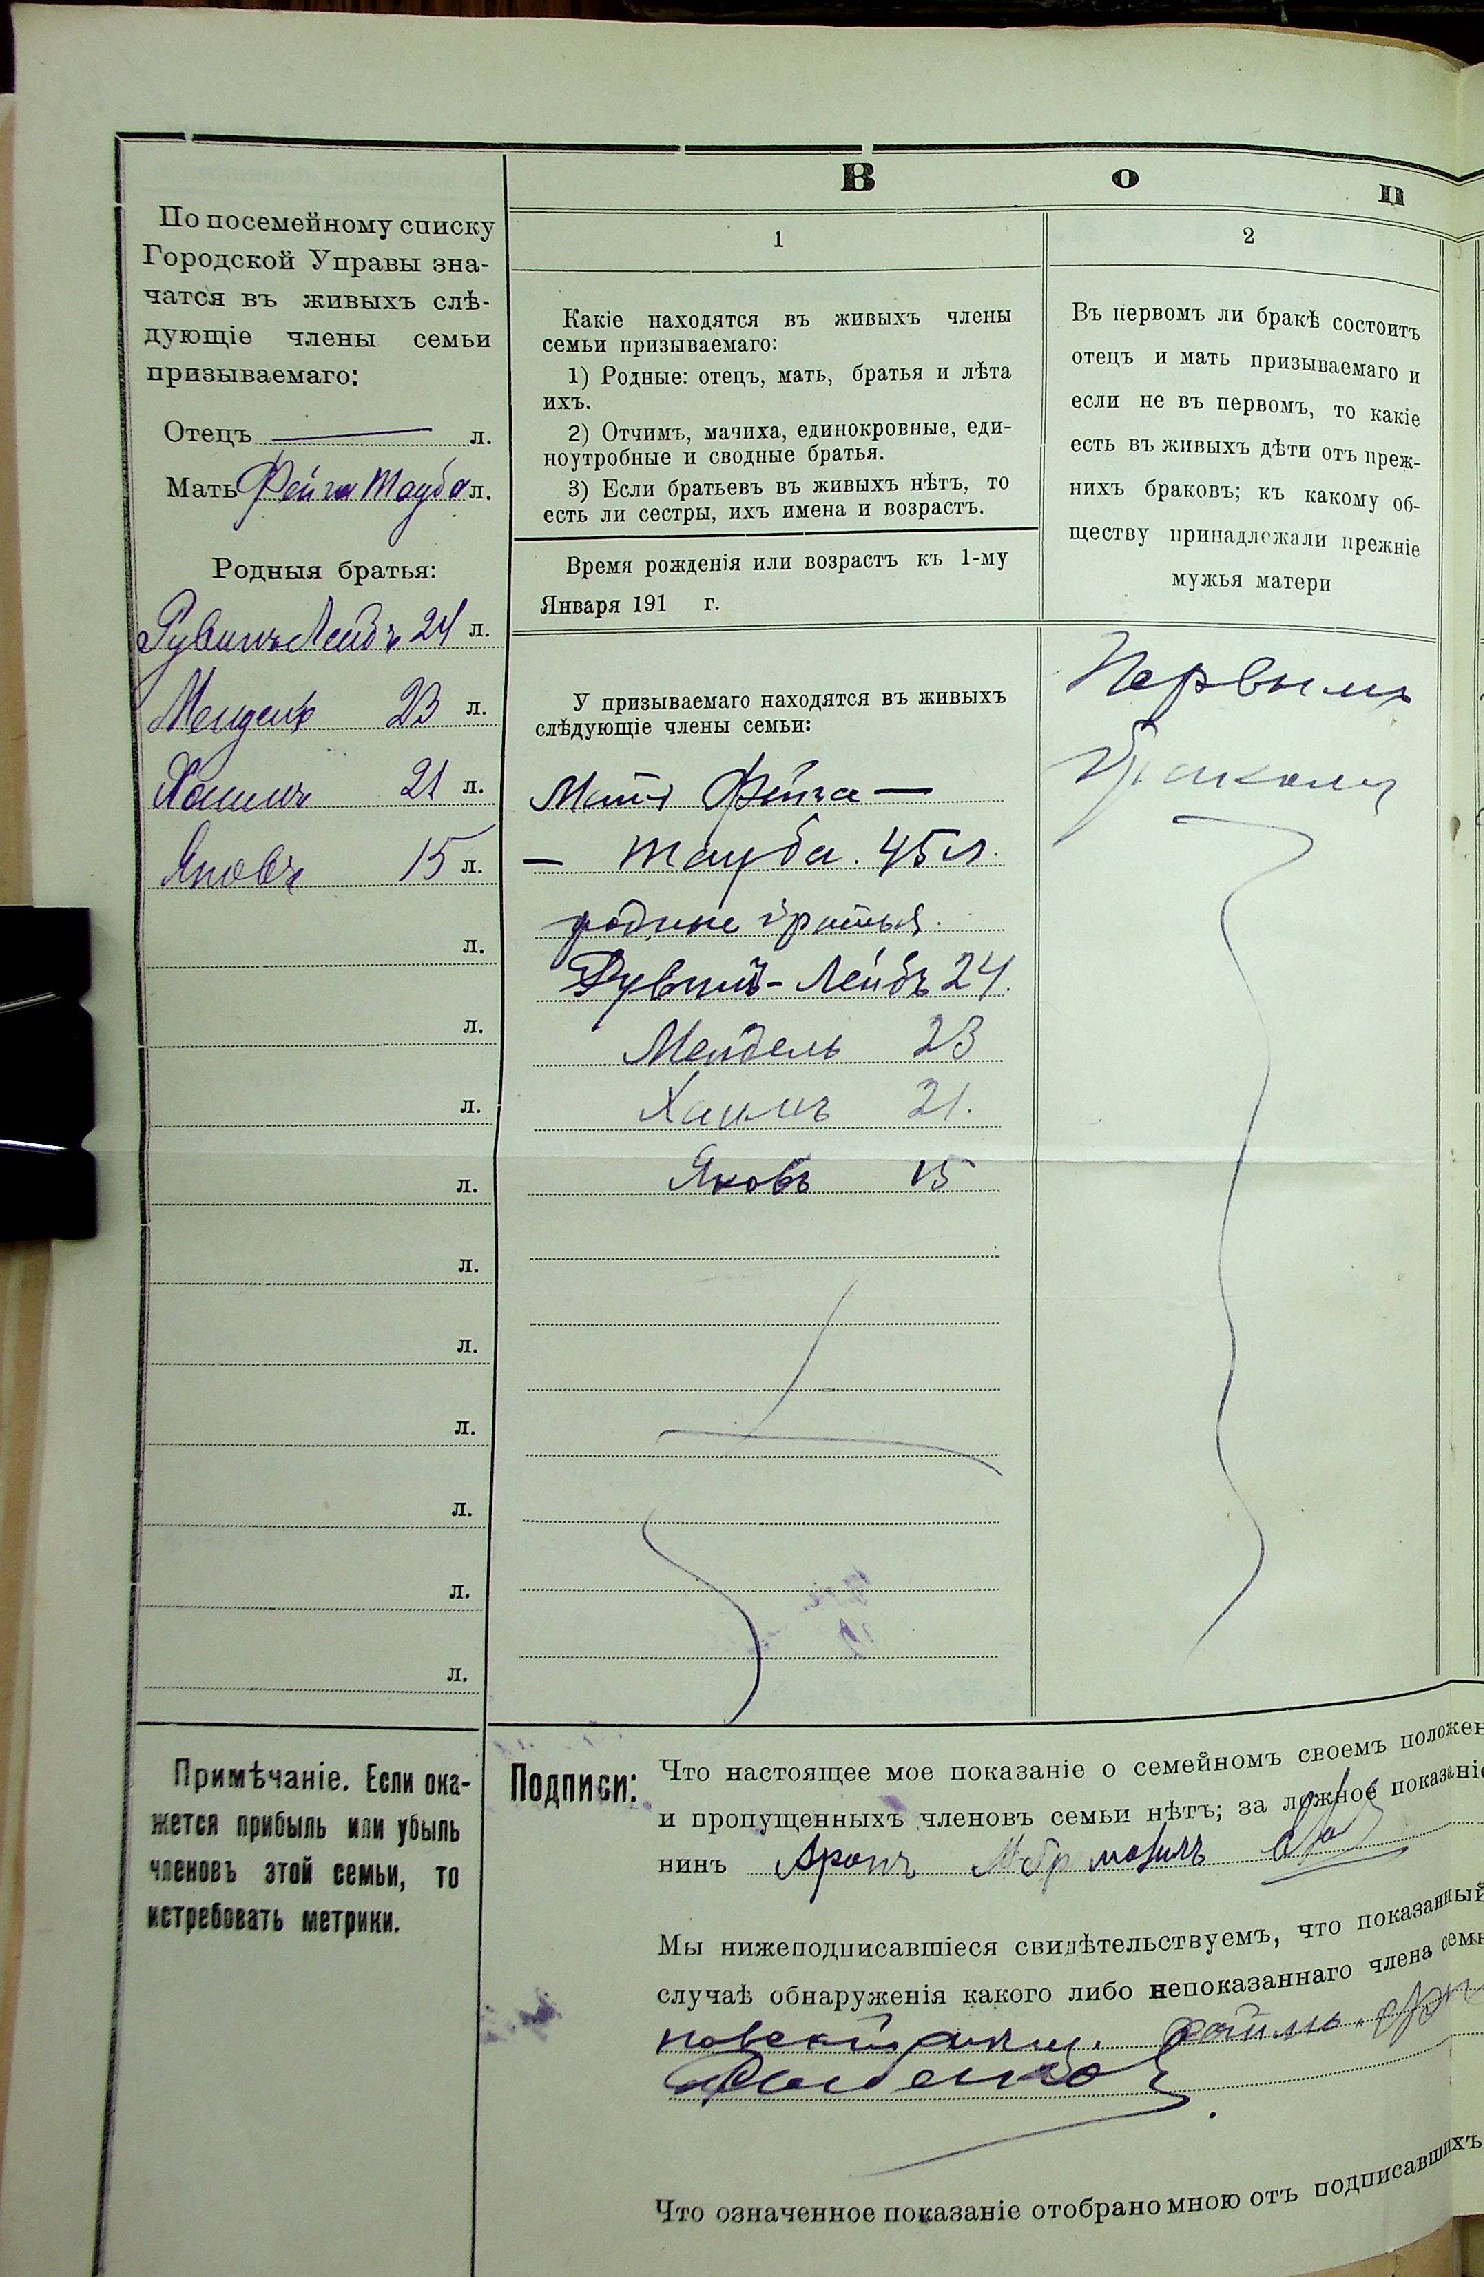 В о п
По посемейному списку
Городской Управы зна-
чатся въ живыхъ слѣ-
дующіе члены семьи
призываемаго:
Отецъ — л.
Мать Фейга Тауба л.
Родныя братья:
Рувимъ Лейбъ 24 л.
Мендель 23 л.
Хаимъ 21 л.
Яковъ 15 л.
л.
л.
л.
л.
л.
л.
л.
л.
л.
л.
Примѣчаніе. Если ока-
жется прибыль или убыль
членовъ этой семьи, то
истребовать метрики.
1
Какіе находятся въ живыхъ члены
семьи призываемаго:
1) Родные: отецъ, мать, братья и лѣта
ихъ.
2) Отчимъ, мачиха, единокровные, еди-
ноутробные и сводные братья.
3) Если братьевъ въ живыхъ нѣтъ, то
есть ли сестры, ихъ имена и возрастъ.
Время рожденія или возрастъ къ 1-му
Января 191 г.
У призываемаго находятся въ живыхъ
слѣдующіе члены семьи:
Мать Фейга —
— Тауба. 45 л.
родные братья.
Рувимъ - Лейбъ 24.
Мендель 23
Хаимъ 21.
Яковъ 15
2
Въ первомъ ли бракѣ состоитъ
отецъ и мать призываемаго и
если не въ первомъ, то какіе
есть въ живыхъ дѣти отъ преж-
нихъ браковъ; къ какому об-
ществу принадлежали прежніе
мужья матери
Первымъ
бракомъ
Подписи:
Что настоящее мое показаніе о семейномъ своемъ положен
и пропущенныхъ членовъ семьи нѣтъ; за ложное показаніе
нинъ Аронъ
Мы нижеподписавшіеся свидѣтельствуемъ, что показанный
случаѣ обнаруженія какого либо непоказаннаго члена семь
Что означенное показаніе отобрано мною отъ подписавшихъ